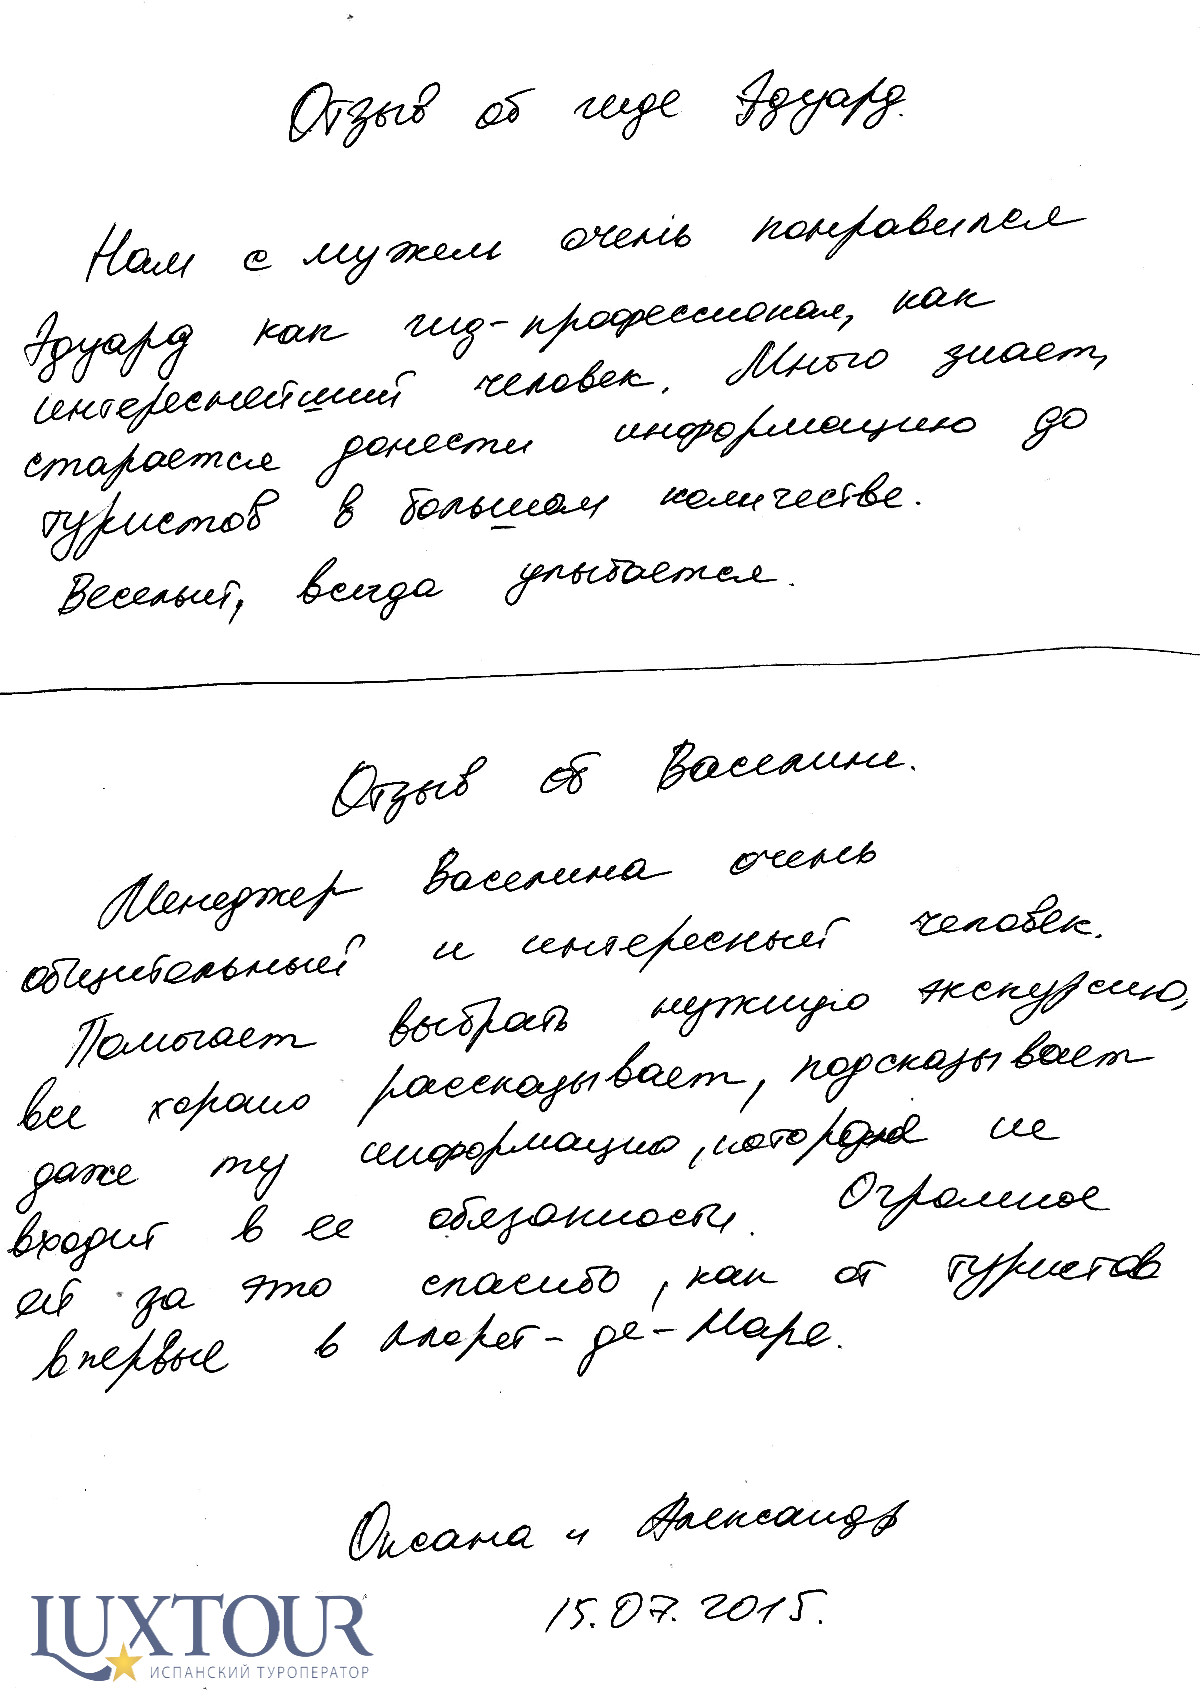 Отзыв об гиде Эдуард.
Нам с мужем очень понравился
Эдуард как гид-профессионал, как
интереснейший человек. Много знает,
старается донести информацию до
туристов в большом количестве.
Веселый, всегда улыбается.
Отзыв об Васелине.
Менеджер Васелина очень
общительный и интересный человек.
Помогает выбрать нужную экскурсию,
все хорошо рассказывает, подсказывает
даже ту информацию, которая не
входит в ее обязанности. Огромное
ей за это спасибо, как от туристов
впервые в Ллорет-де-Маре.
Оксана и Александр
15.07.2015.
LUXTOUR
ИСПАНСКИЙ ТУРОПЕРАТОР